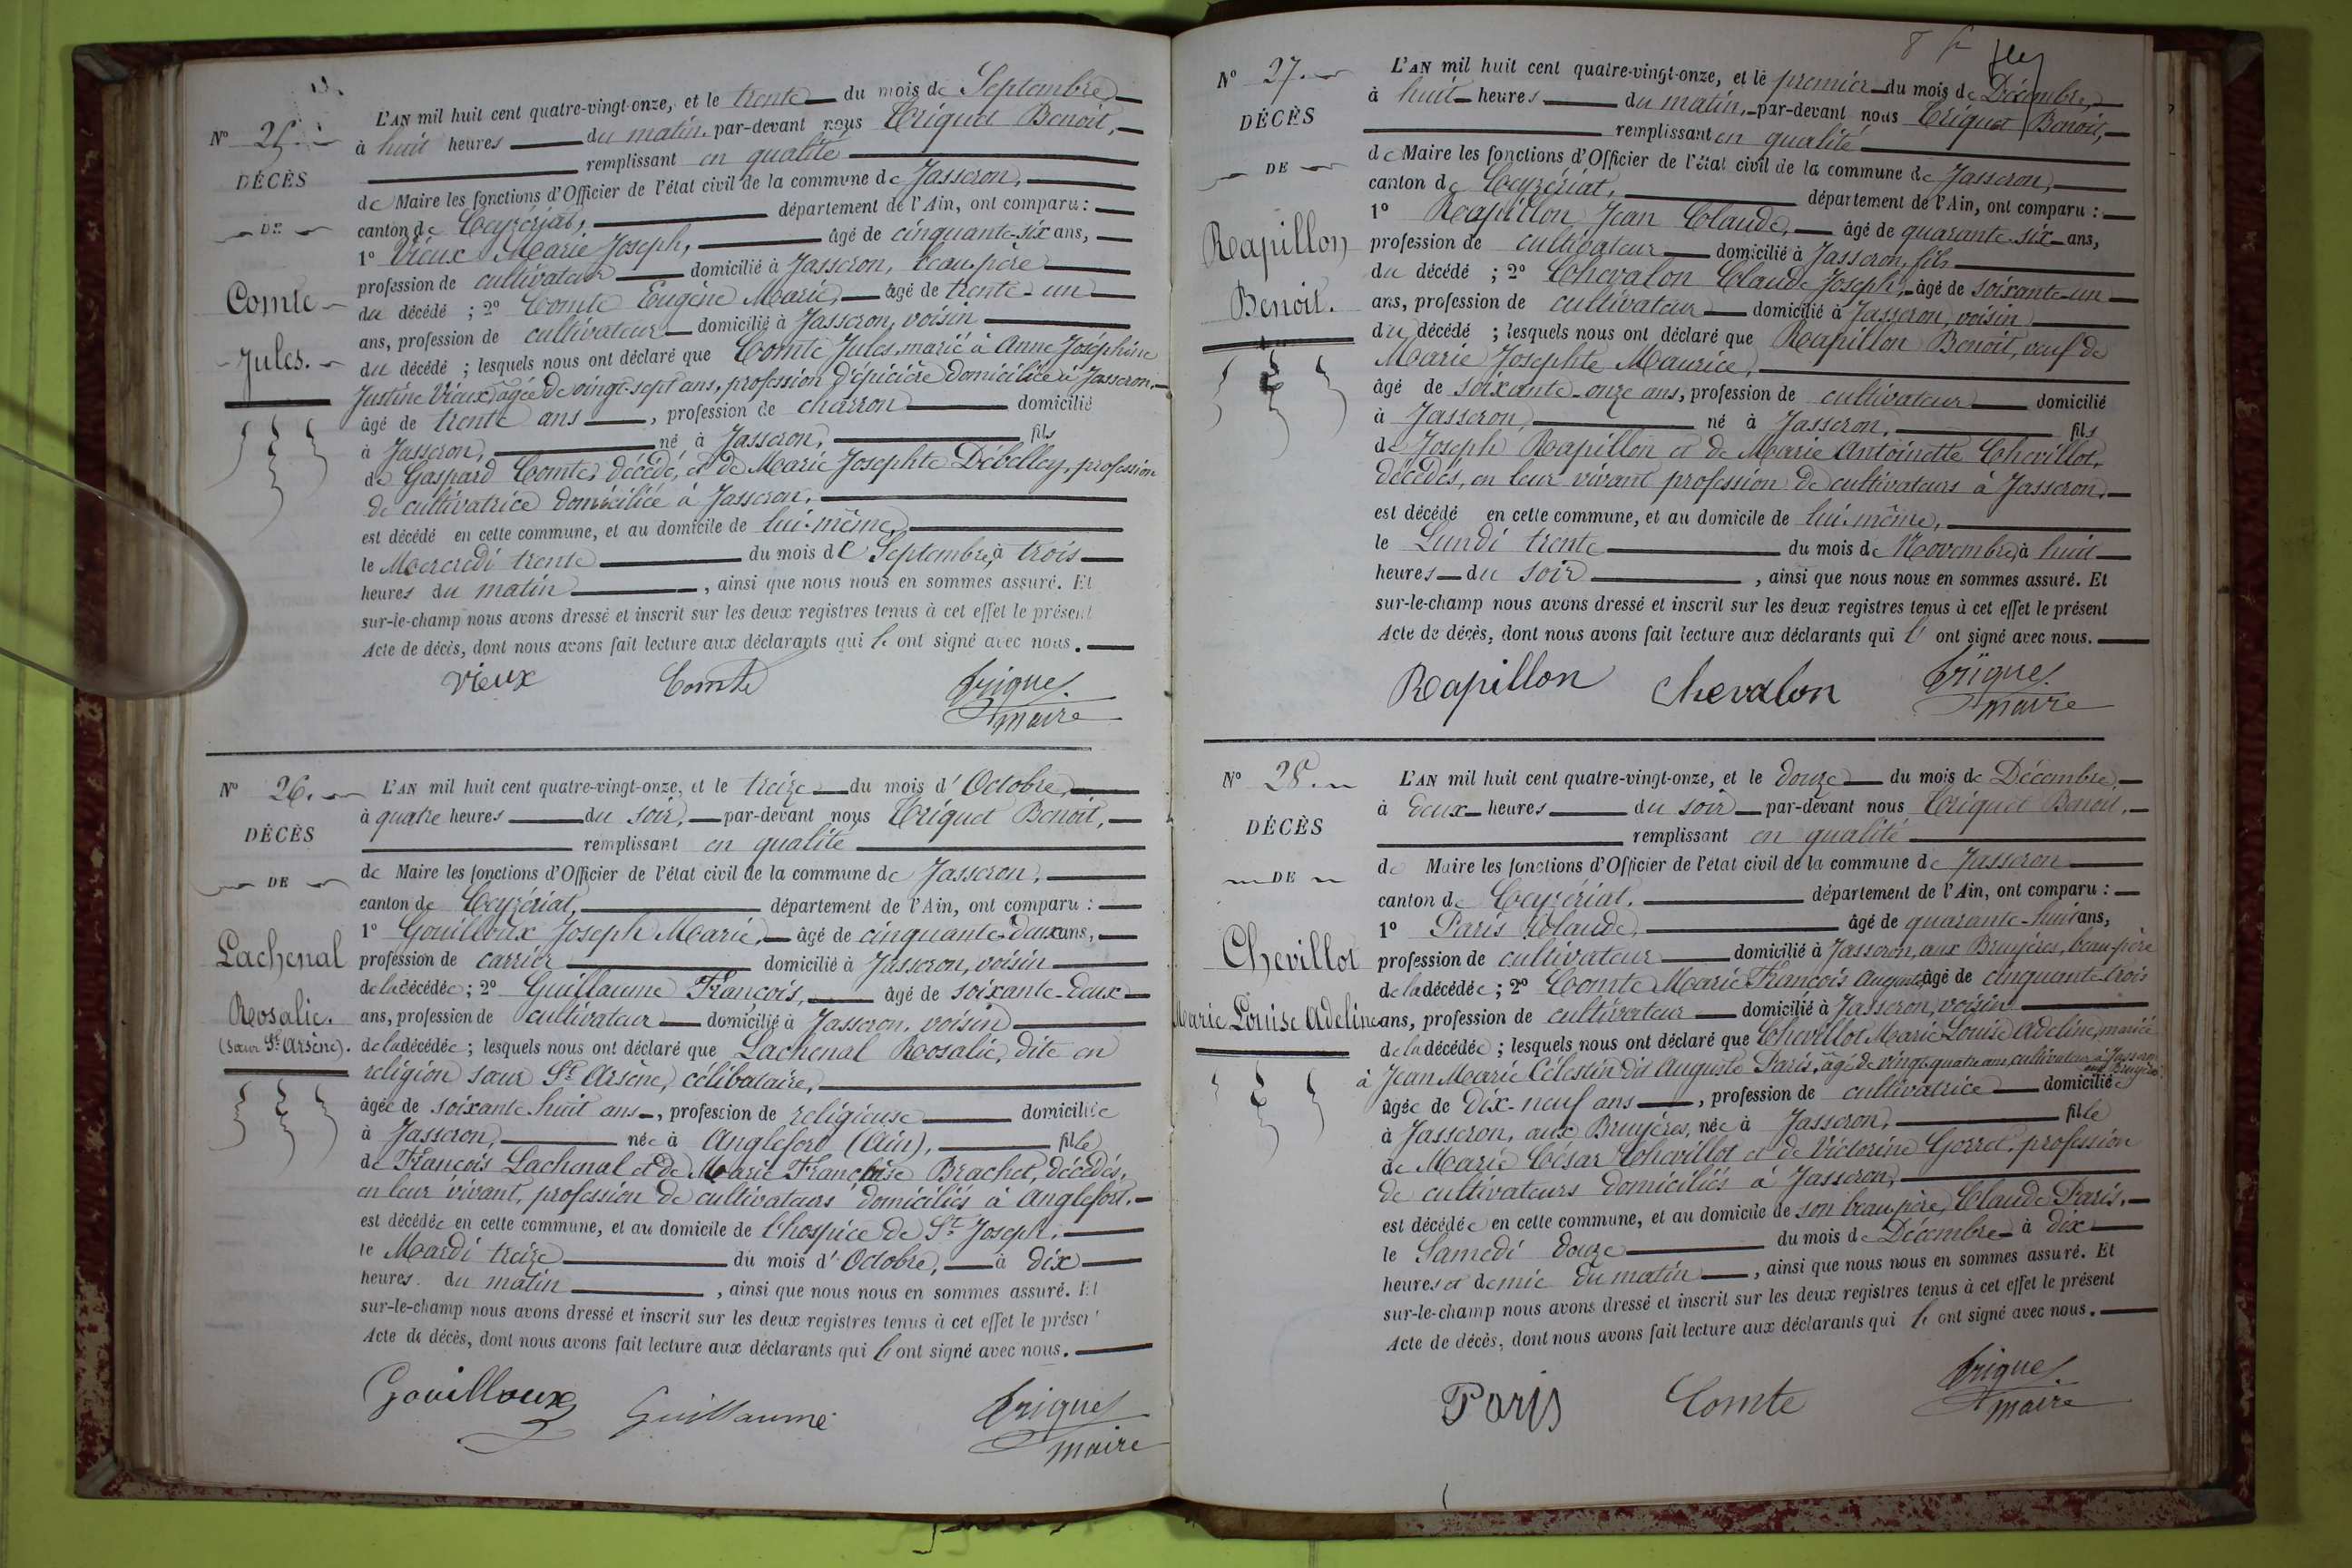 N° 25.
DÉCÈS
DE
Comte
Jules.
L'AN mil huit cent quatre-vingt-onze, et le trente du mois de Septembre,
à huit heures du matin, par-devant nous Triquet Benoit,
remplissant en qualité
de Maire les fonctions d'Officier de l'état civil de la commune de Jasseron,
canton de Ceyzériat, département de l'Ain, ont comparu :
1° Vieux Marie Joseph, âgé de cinquante-six ans,
profession de cultivateur domicilié à Jasseron, beau-père
du décédé ; 2° Comte Eugène Marie, âgé de trente-un
ans, profession de cultivateur domicilié à Jasseron, voisin
du décédé ; lesquels nous ont déclaré que Comte Jules, marié à Anne Joséphine
Justine Vieux, âgée de vingt-sept ans, profession d'épicière domiciliée à Jasseron,
âgé de trente ans, profession de charron domicilié
à Jasseron, né à Jasseron, fils
de Gaspard Comte, décédé, et de Marie Josephte Débelley, profession
de cultivatrice domiciliée à Jasseron,
est décédé en cette commune, et au domicile de lui-même,
le Mercredi trente du mois de Septembre, à trois
heures du matin, ainsi que nous nous en sommes assuré. Et
sur-le-champ nous avons dressé et inscrit sur les deux registres tenus à cet effet le présent
Acte de décès, dont nous avons fait lecture aux déclarants qui l'ont signé avec nous.
Vieux Comte Triquet
maire
N° 26.
DÉCÈS
DE
Lachenal
Rosalie.
(Sœur St Arsène).
L'AN mil huit cent quatre-vingt-onze, et le treize du mois d'Octobre,
à quatre heures du soir, par-devant nous Triquet Benoit,
remplissant en qualité
de Maire les fonctions d'Officier de l'état civil de la commune de Jasseron,
canton de Ceyzériat, département de l'Ain, ont comparu :
1° Gouilloux Joseph Marie, âgé de cinquante-deux ans,
profession de carrier domicilié à Jasseron, voisin
de la décédée ; 2° Guillaume François, âgé de soixante-deux
ans, profession de cultivateur domicilié à Jasseron, voisin
de la décédée ; lesquels nous ont déclaré que Lachenal Rosalie, dite en
religion sœur St Arsène, célibataire,
âgée de soixante huit ans, profession de religieuse domiciliée
à Jasseron, née à Anglefort (Ain), fille
de François Lachenal et de Marie Françoise Brachet, décédés,
en leur vivant, profession de cultivateurs domiciliés à Anglefort.
est décédée en cette commune, et au domicile de l'hospice de St Joseph,
le Mardi treize du mois d'Octobre, à dix
heures du matin, ainsi que nous nous en sommes assuré. Et
sur-le-champ nous avons dressé et inscrit sur les deux registres tenus à cet effet le présent
Acte de décès, dont nous avons fait lecture aux déclarants qui l'ont signé avec nous.
Gouilloux Guillaume Triquet
maire
N° 27.
DÉCÈS
DE
Rapillon
Benoit.
L'AN mil huit cent quatre-vingt-onze, et le premier du mois de Décembre,
à huit heures du matin, par-devant nous Triquet Benoit,
remplissant en qualité
de Maire les fonctions d'Officier de l'état civil de la commune de Jasseron,
canton de Ceyzériat, département de l'Ain, ont comparu :
1° Rapillon Jean Claude, âgé de quarante-six ans,
profession de cultivateur domicilié à Jasseron, fils
du décédé ; 2° Chevalon Claude Joseph, âgé de soixante-un
ans, profession de cultivateur domicilié à Jasseron, voisin
du décédé ; lesquels nous ont déclaré que Rapillon Benoit, veuf de
Marie Josephte Maurice,
âgé de soixante-onze ans, profession de cultivateur domicilié
à Jasseron, né à Jasseron, fils
de Joseph Rapillon et de Marie Antoinette Chevillot,
décédés, en leur vivant profession de cultivateurs à Jasseron,
est décédé en cette commune, et au domicile de lui-même,
le Lundi trente du mois de Novembre, à huit
heures du soir, ainsi que nous nous en sommes assuré. Et
sur-le-champ nous avons dressé et inscrit sur les deux registres tenus à cet effet le présent
Acte de décès, dont nous avons fait lecture aux déclarants qui l'ont signé avec nous.
Rapillon Chevalon Triquet
maire
N° 28.
DÉCÈS
DE
Chevillot
Marie Louise Adeline
L'AN mil huit cent quatre-vingt-onze, et le douze du mois de Décembre,
à deux heures du soir par-devant nous Triquet Benoit,
remplissant en qualité
de Maire les fonctions d'Officier de l'état civil de la commune de Jasseron
canton de Ceyzériat, département de l'Ain, ont comparu :
1° Paris Claude, âgé de quarante-huit ans,
profession de cultivateur domicilié à Jasseron, aux Bruyères, beau-père
de la décédée ; 2° Comte Marie François Auguste, âgé de cinquante-trois
ans, profession de cultivateur domicilié à Jasseron, voisin
de la décédée ; lesquels nous ont déclaré que Chevillot Marie Louise Adeline, mariée
à Jean Marie Célestin dit Auguste Paris, âgé de vingt-quatre ans, cultivateur à Jasseron
aux Bruyères,
âgée de dix-neuf ans, profession de cultivatrice domiciliée
à Jasseron, aux Bruyères, née à Jasseron, fille
de Marie César Chevillot et de Victorine Gorret, profession
de cultivateurs domiciliés à Jasseron,
est décédée en cette commune, et au domicile de son beau-père, Claude Paris,
le Samedi douze du mois de Décembre à dix
heures et demie du matin, ainsi que nous nous en sommes assuré. Et
sur-le-champ nous avons dressé et inscrit sur les deux registres tenus à cet effet le présent
Acte de décès, dont nous avons fait lecture aux déclarants qui l'ont signé avec nous.
Paris Comte Triquet
maire